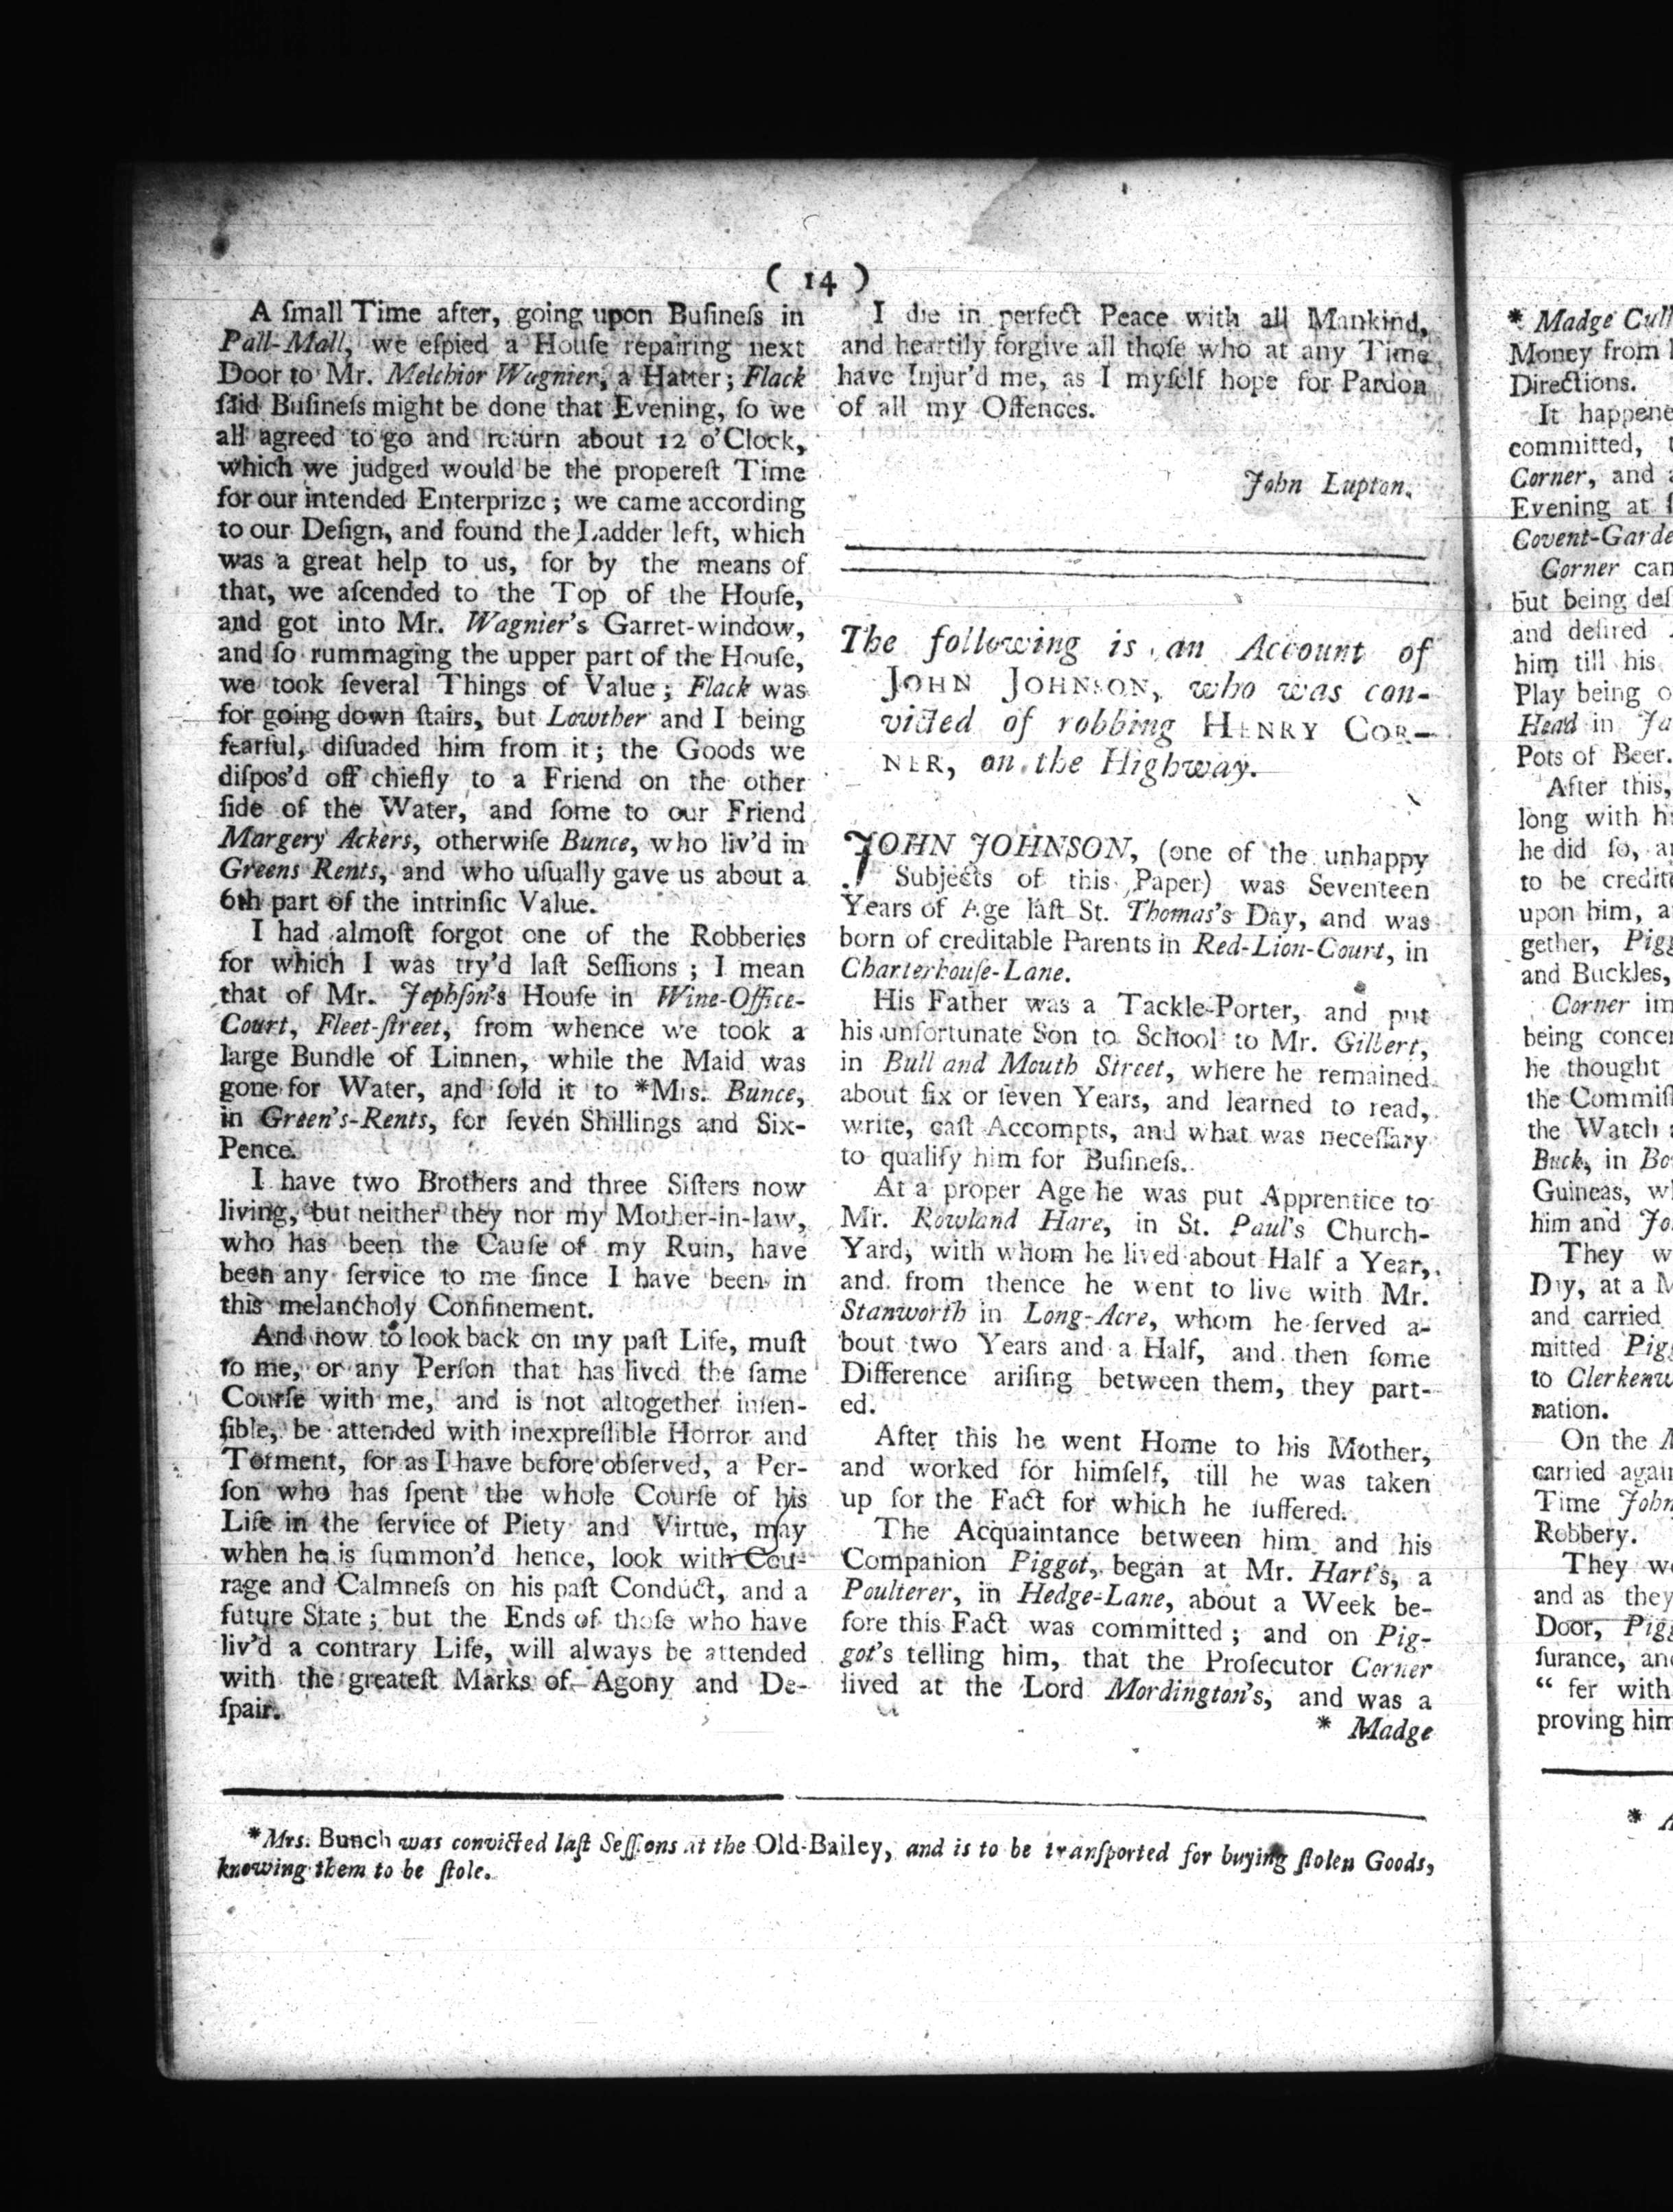 ( 14 )
A ſmall Time after, going upon Buſineſs in
Pall-Mall, we eſpied a Houſe repairing next
Door to Mr. Melchior Wagnier, a Hatter; Flack
ſaid Buſineſs might be done that Evening, ſo we
all agreed to go and return about 12 o'Clock,
which we judged would be the propereſt Time
for our intended Enterprize; we came according
to our Deſign, and found the Ladder left, which
was a great help to us, for by the means of
that, we aſcended to the Top of the Houſe,
and got into Mr. Wagnier's Garret-window,
and ſo rummaging the upper part of the Houſe,
we took ſeveral Things of Value; Flack was
for going down ſtairs, but Lowther and I being
fearful, diſuaded him from it; the Goods we
diſpos'd off chiefly to a Friend on the other
ſide of the Water, and ſome to our Friend
Margery Ackers, otherwiſe Bunce, who liv'd in
Greens Rents, and who uſually gave us about a
6th part of the intrinſic Value.
I had almoſt forgot one of the Robberies
for which I was try'd laſt Seſſions; I mean
that of Mr. Jephſon's Houſe in Wine-Office-
Court, Fleet-ſtreet, from whence we took a
large Bundle of Linnen, while the Maid was
gone for Water, and ſold it to *Mrs. Bunce,
in Green's-Rents, for ſeven Shillings and Six-
Pence.
I have two Brothers and three Siſters now
living, but neither they nor my Mother-in-law,
who has been the Cauſe of my Ruin, have
been any ſervice to me ſince I have been in
this melancholy Confinement.
And now to look back on my paſt Life, muſt
to me, or any Perſon that has lived the ſame
Courſe with me, and is not altogether inſen-
ſible, be attended with inexpreſſible Horror and
Torment, for as I have before obſerved, a Per-
ſon who has ſpent the whole Courſe of his
Life in the ſervice of Piety and Virtue, may
when he is ſummon'd hence, look with Cou-
rage and Calmneſs on his paſt Conduct, and a
future State; but the Ends of thoſe who have
liv'd a contrary Life, will always be attended
with the greateſt Marks of Agony and De-
ſpair.
I die in perfect Peace with all Mankind,
and heartily forgive all thoſe who at any Time
have Injur'd me, as I myſelf hope for Pardon
of all my Offences.
John Lupton.
The following is an Account of
JOHN JOHNSON, who was con-
victed of robbing HENRY COR-
NER, on the Highway.
JOHN JOHNSON, (one of the unhappy
Subjects of this Paper) was Seventeen
Years of Age laſt St. Thomas's Day, and was
born of creditable Parents in Red-Lion-Court, in
Charterhouſe-Lane.
His Father was a Tackle-Porter, and put
his unfortunate Son to School to Mr. Gilbert,
in Bull and Mouth Street, where he remained
about ſix or ſeven Years, and learned to read,
write, caſt Accompts, and what was neceſſary
to qualify him for Buſineſs.
At a proper Age he was put Apprentice to
Mr. Rowland Hare, in St. Paul's Church-
Yard, with whom he lived about Half a Year,
and from thence he went to live with Mr.
Stanworth in Long-Acre, whom he ſerved a-
bout two Years and a Half, and then ſome
Difference ariſing between them, they part-
ed.
After this he went Home to his Mother,
and worked for himſelf, till he was taken
up for the Fact for which he ſuffered.
The Acquaintance between him and his
Companion Piggot, began at Mr. Hart's, a
Poulterer, in Hedge-Lane, about a Week be-
fore this Fact was committed; and on Pig-
got's telling him, that the Proſecutor Corner
lived at the Lord Mordington's, and was a
* Madge
*Mrs. Bunch was convicted laſt Seſſions at the Old-Bailey, and is to be tranſported for buying ſtolen Goods,
knowing them to be ſtole.
* Madge Cull
Money from
Directions.
It happene
committed,
Corner, and
Evening at
Covent-Garde
Corner can
but being deſ
and deſired
him till his
Play being o
Head in Ja
Pots of Beer.
After this,
long with h
he did ſo, a
to be credit
upon him, a
gether, Pigg
and Buckles,
Corner im
being concer
he thought
the Commiſſ
the Watch
Buck, in Bo
Guineas, w
him and Jo
They w
Day, at a M
and carried
mitted Pigg
to Clerkenw
nation.
On the
carried again
Time John
Robbery.
They we
and as they
Door, Pigg
ſurance, and
“ fer with
proving him
*